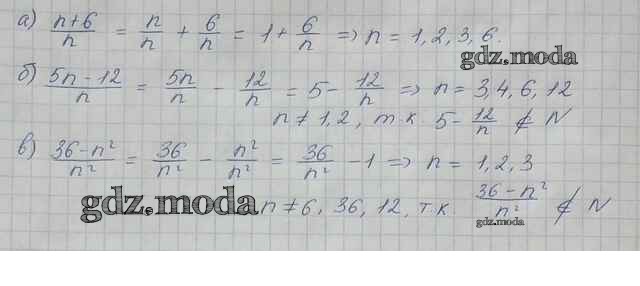 а) (n+6)/n = n/n + 6/n = 1 + 6/n ⇒ n = 1, 2, 3, 6.
gdz.moda
б) (5n - 12)/n = 5n/n - 12/n = 5 - 12/n ⇒ n = 3, 4, 6, 12
n ≠ 1, 2, т.к. 5 - 12/n ∉ N
в) (36 - n²)/n² = 36/n² - n²/n² = 36/n² - 1 ⇒ n = 1, 2, 3
gdz.moda n ≠ 6, 36, 12, т.к. (36 - n²)/n² ∉ N
gdz.moda